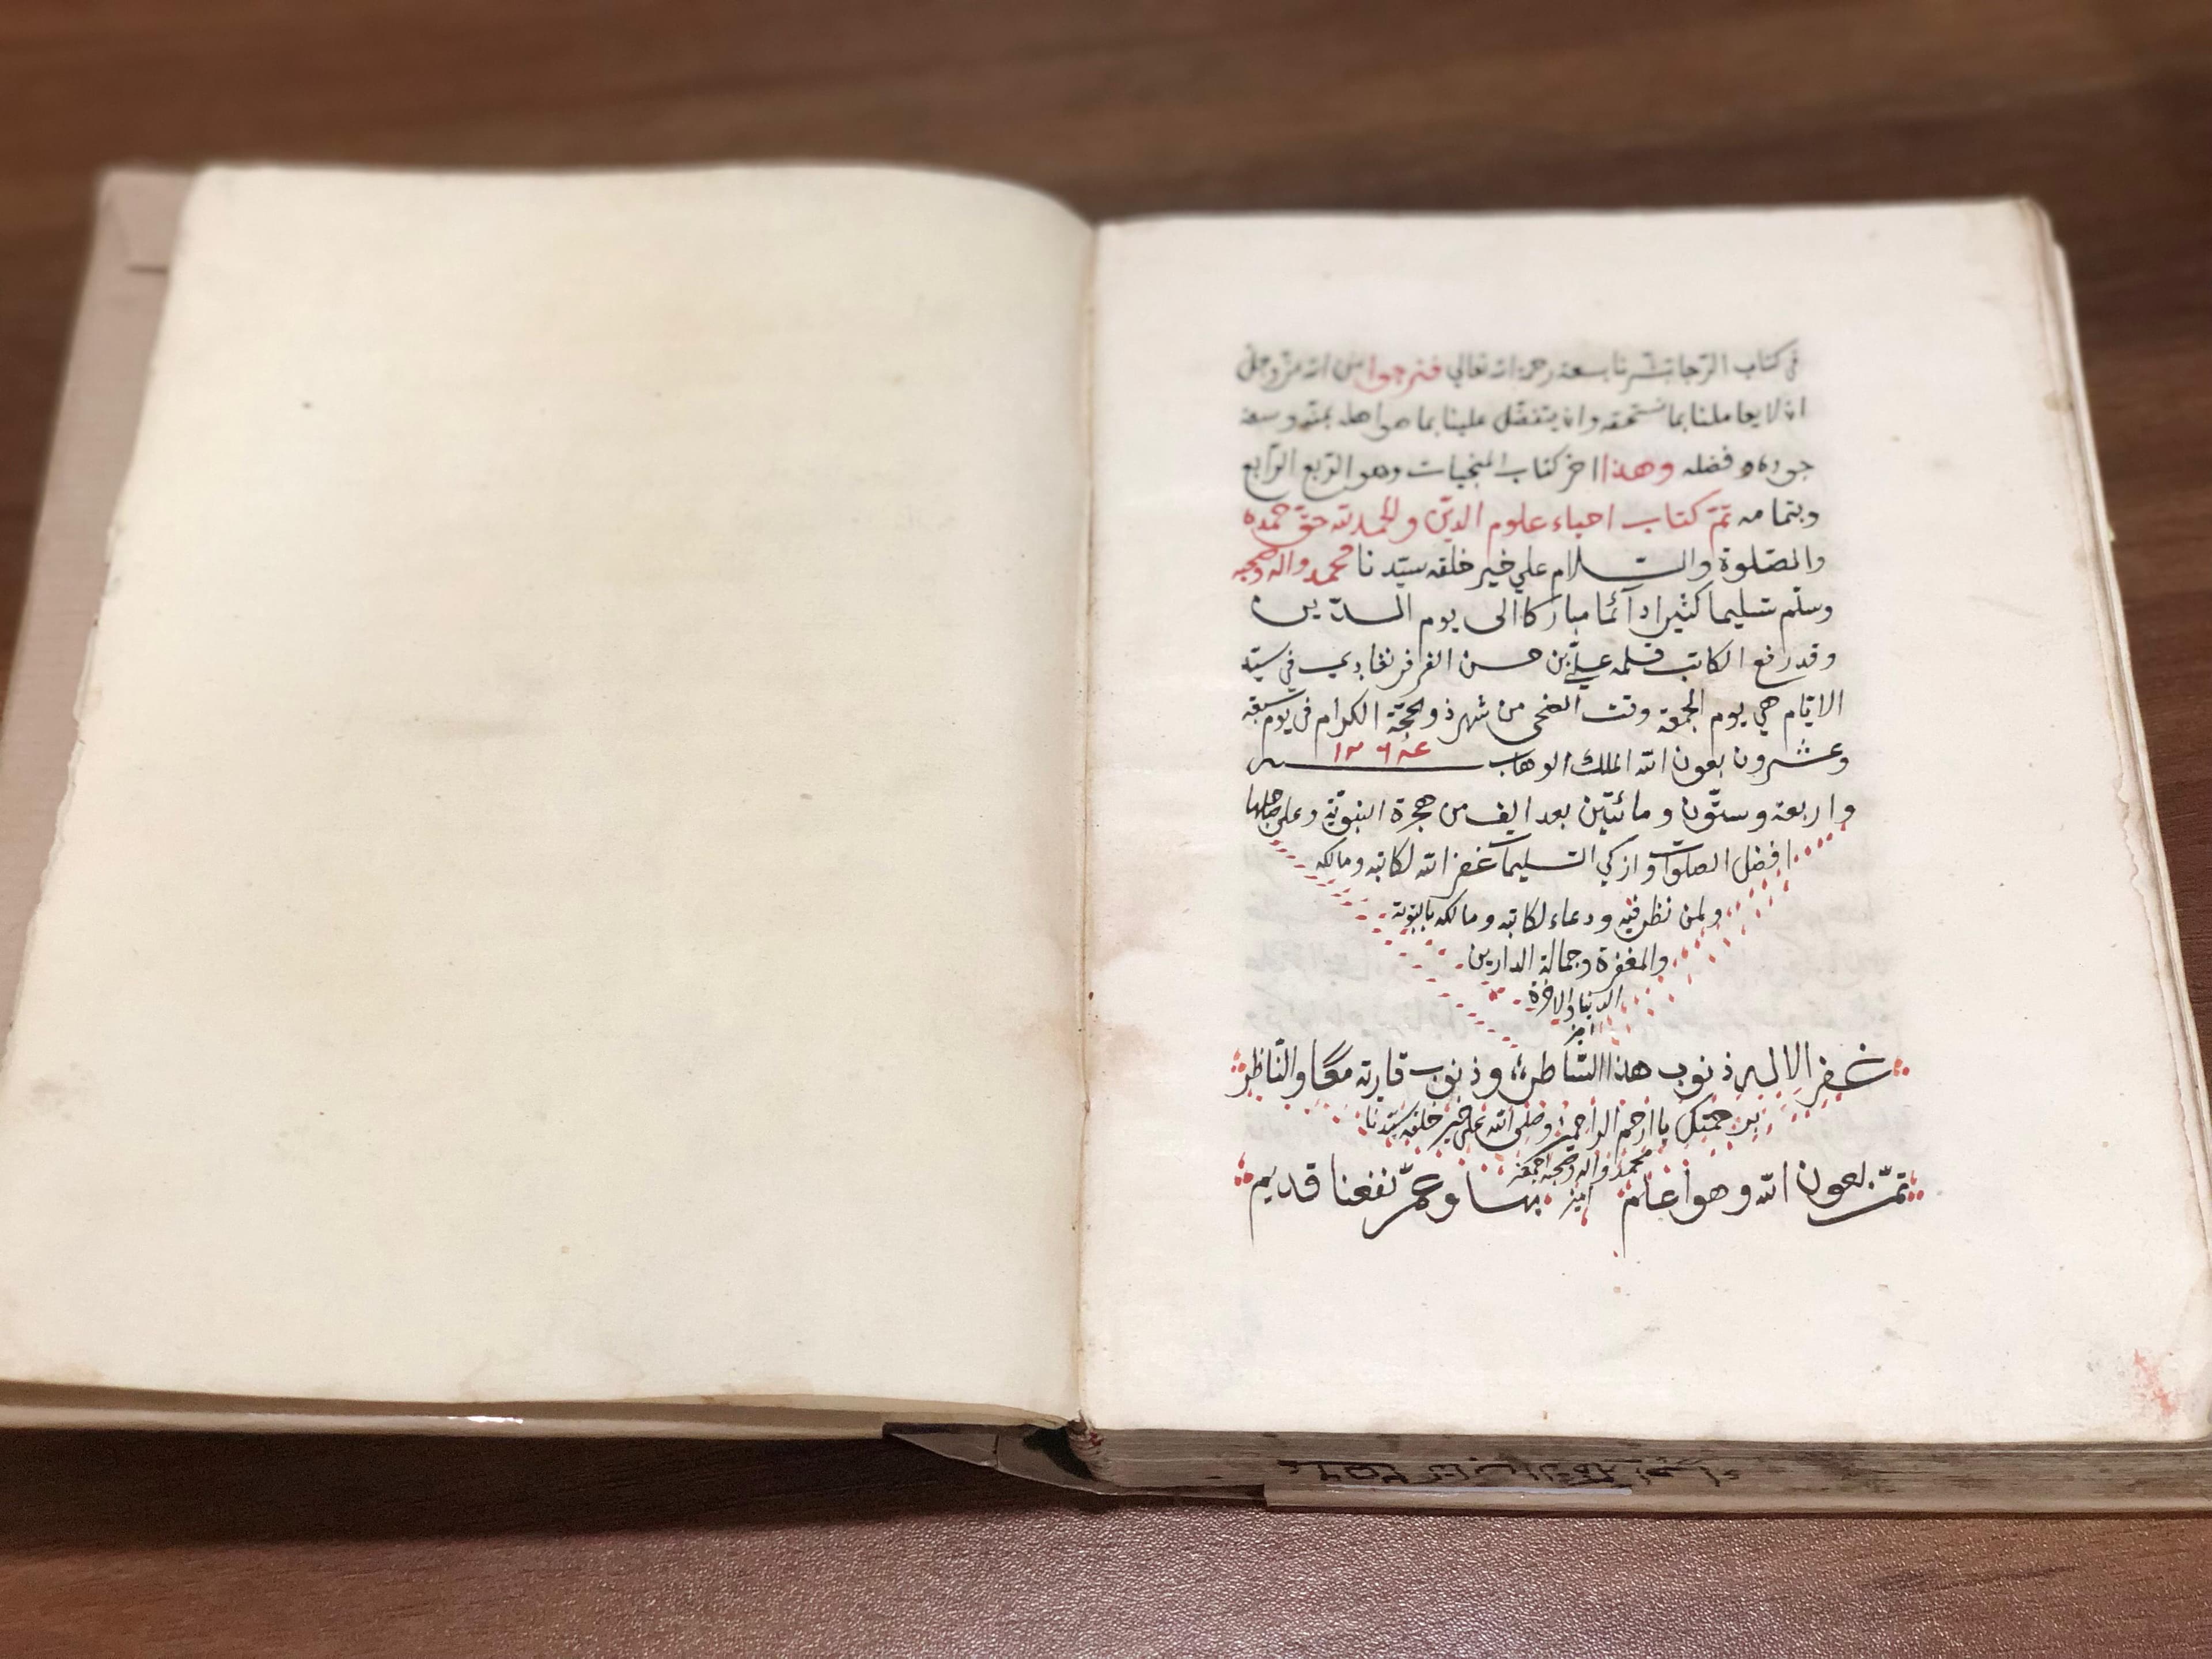 في كتاب الرّجا تبشّرنا بسعة رحمة الله تعالي فنرجوا من الله عزّ وجلّ
ان لا يعاملنا بما نستحقه وان يتفضّل علينا بما هو اهله بمنّه وسعة
جوده وفضله وهذا اخر كتاب المنجيات وهو الرّبع الرّابع
وبتمامه تمّ كتاب احياء علوم الدّين والحمد لله حقّ حمده
والصّلوة والسّلام علي خير خلقه سيّدنا محمد واله وصحبه
وسلّم تسليما كثيرا دآئما مباركا الى يوم الدّين
وقد رفع الكاتب قلمه عليّ بن حسن في سيّد
الايّام هي يوم الجمعة وقت الضحى من شهر ذو الحجّة الكرام في يوم سبعة
وعشرون بعون الله الملك الوهاب سنة ١٢٦٤
واربعة وستّون ومائتين بعد الف من هجرة النبوّيّة وعلى صاحبها
افضل الصلوات وازكي التسليمات غفر الله لكاتبه ومالكه
ولمن نظر فيه ودعاء لكاتبه ومالكه بالتوبة
والمغفرة وجمالة الدارين
الدنيا والاخرة
امين
غفر الاله ذنوب هذا السّاطر وذنوب قارئه معًا والنّاظر
برحمتك يا ارحم الراحمين وصلى الله على خير خلقه سيّدنا
محمد واله وصحبه اجمعين
امين
تمّت بعون الله وهو اعلم بها وعمّ نفعنا قديم